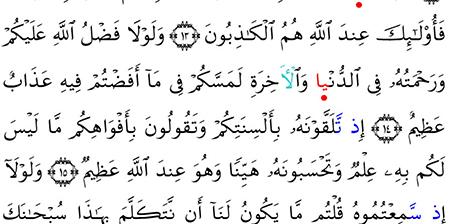 فَأُو۟لَـٰٓئِكَ عِندَ ٱللَّهِ هُمُ ٱلْكَـٰذِبُونَ ﴿١٣﴾ وَلَوْلَا فَضْلُ ٱللَّهِ عَلَيْكُمْ
وَرَحْمَتُهُۥ فِى ٱلدُّنْيا وَٱلْأَخِرَةِ لَمَسَّكُمْ فِى مَآ أَفَضْتُمْ فِيهِ عَذَابٌ
عَظِيمٌ ﴿١٤﴾ إِذ تَّلَقَّوْنَهُۥ بِأَلْسِنَتِكُمْ وَتَقُولُونَ بِأَفْوَاهِكُم مَّا لَيْسَ
لَكُم بِهِۦ عِلْمٌ وَتَحْسَبُونَهُۥ هَيِّنًا وَهُوَ عِندَ ٱللَّهِ عَظِيمٌ ﴿١٥﴾ وَلَوْلَآ
إِذ سَّمِعْتُمُوهُ قُلْتُم مَّا يَكُونُ لَنَآ أَن نَّتَكَلَّمَ بِهَـٰذَا سُبْحَـٰنَكَ